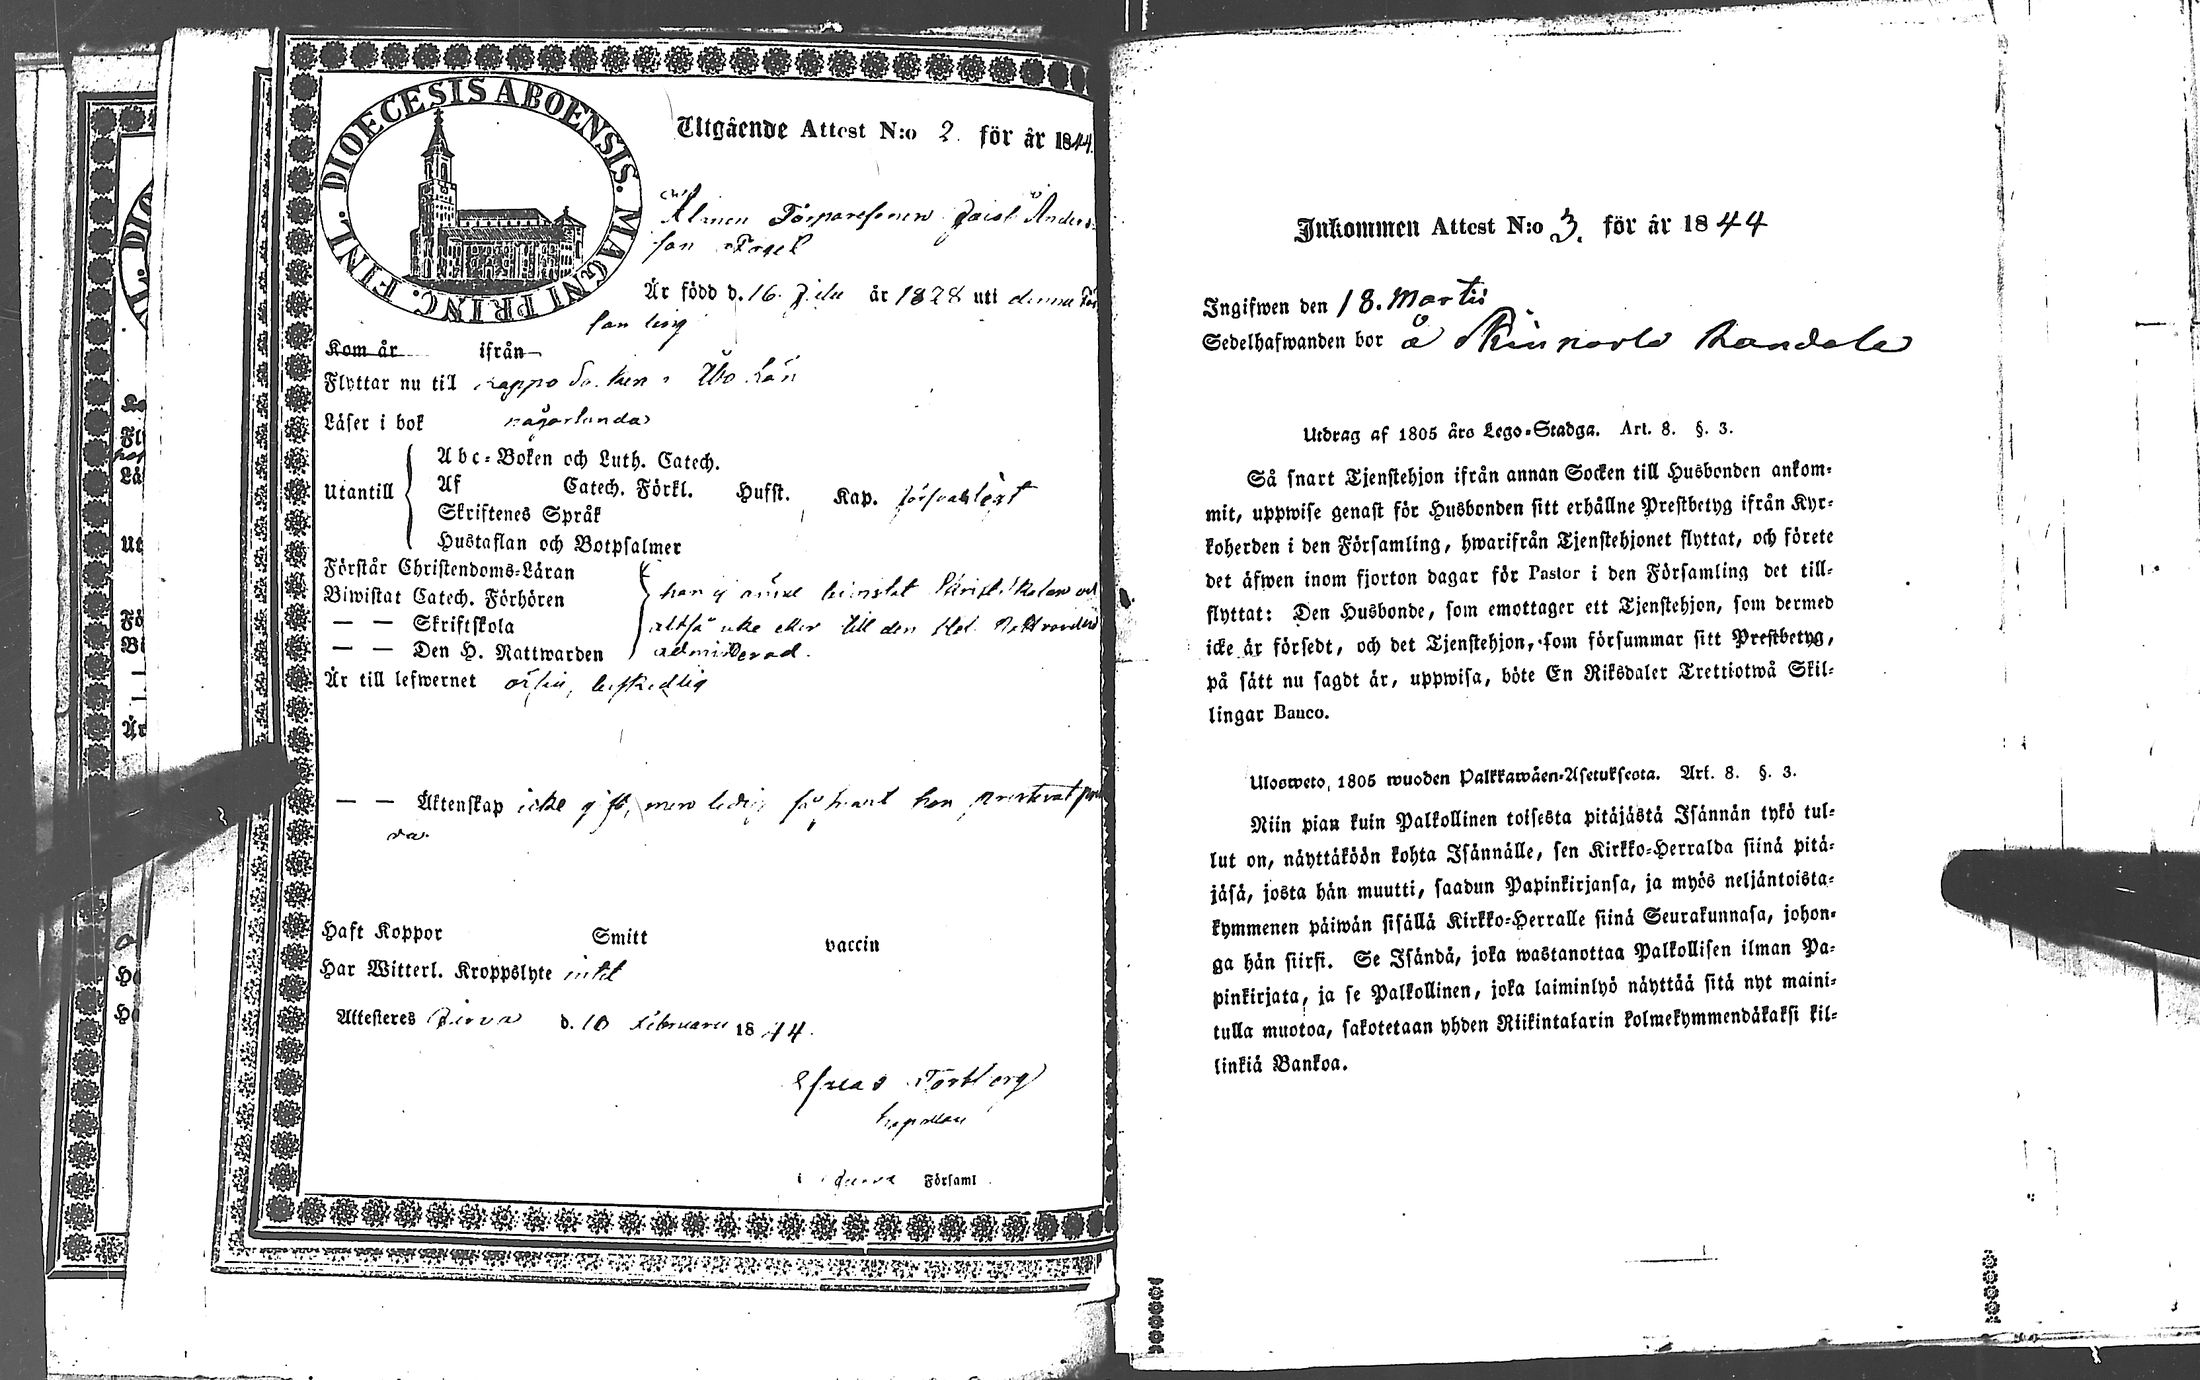 DIOECESIS ABOENSIS. MAGNI PRINC. FINL.
Utgående Attest N:o 2. för år 1844.
Torparesonen Anders-
son
Är född d. 16. år 1828 uti denna För
samling
Kom år ifrån
Flyttar nu till Åbo Län
Läser i bok någorlunda
Utantill
Abc-Boken och Luth. Catech.
Af Catech. Förkl. Husst. Kap. försvarligt
Skriftenes Språk
Hustaflan och Botpsalmer
Förstår Christendoms-Läran
Biwistat Catech. Förhören
— — Skriftskola
— — Den H. Nattwarden
han ej ännu bivistat
altså icke eller till den Hel. Nattvarden
admitterad.
Är till lefwernet beskedlig
— — Äktenskap icke gift, men ledig så framt han
va.
Haft Koppor Smitt vaccin
Har Witterl. Kroppslyte intet
Attesteres d. 10 Februarii 1844.
i Församl
Inkommen Attest N:o 3. för år 1844
Ingifwen den 18. Martii
Sedelhafwanden bor å Skinnarla
Utdrag af 1805 års Lego-Stadga. Art. 8. §. 3.
Så snart Tjenstehjon ifrån annan Socken till Husbonden ankom-
mit, uppwise genast för Husbonden sitt erhållne Prestbetyg ifrån Kyr-
koherden i den Församling, hwarifrån Tjenstehjonet flyttat, och förete
det äfwen inom fjorton dagar för Pastor i den Församling det till-
flyttat: Den Husbonde, som emottager ett Tjenstehjon, som dermed
icke är försedt, och det Tjenstehjon, som försummar sitt Prestbetyg,
på sätt nu sagdt är, uppwisa, böte En Riksdaler Trettiotwå Skil-
lingar Banco.
Ulosweto, 1805 wuoden Palkkawäen-Asetuksesta. Art. 8. §. 3.
Niin pian kuin Palkollinen toisesta pitäjästä Isännän tykö tul-
lut on, näyttäköön kohta Isännälle, sen Kirkko-Herralda siinä pitä-
jäsä, josta hän muutti, saadun Papinkirjansa, ja myös neljäntoista-
kymmenen päiwän sisällä Kirkko-Herralle siinä Seurakunnasa, johon-
ga hän siirsi. Se Isändä, joka wastanottaa Palkollisen ilman Pa-
pinkirjata, ja se Palkollinen, joka laiminlyö näyttää sitä nyt maini-
tulla muotoa, sakotetaan yhden Riikintalarin kolmekymmendäkaksi kil-
linkiä Bankoa.